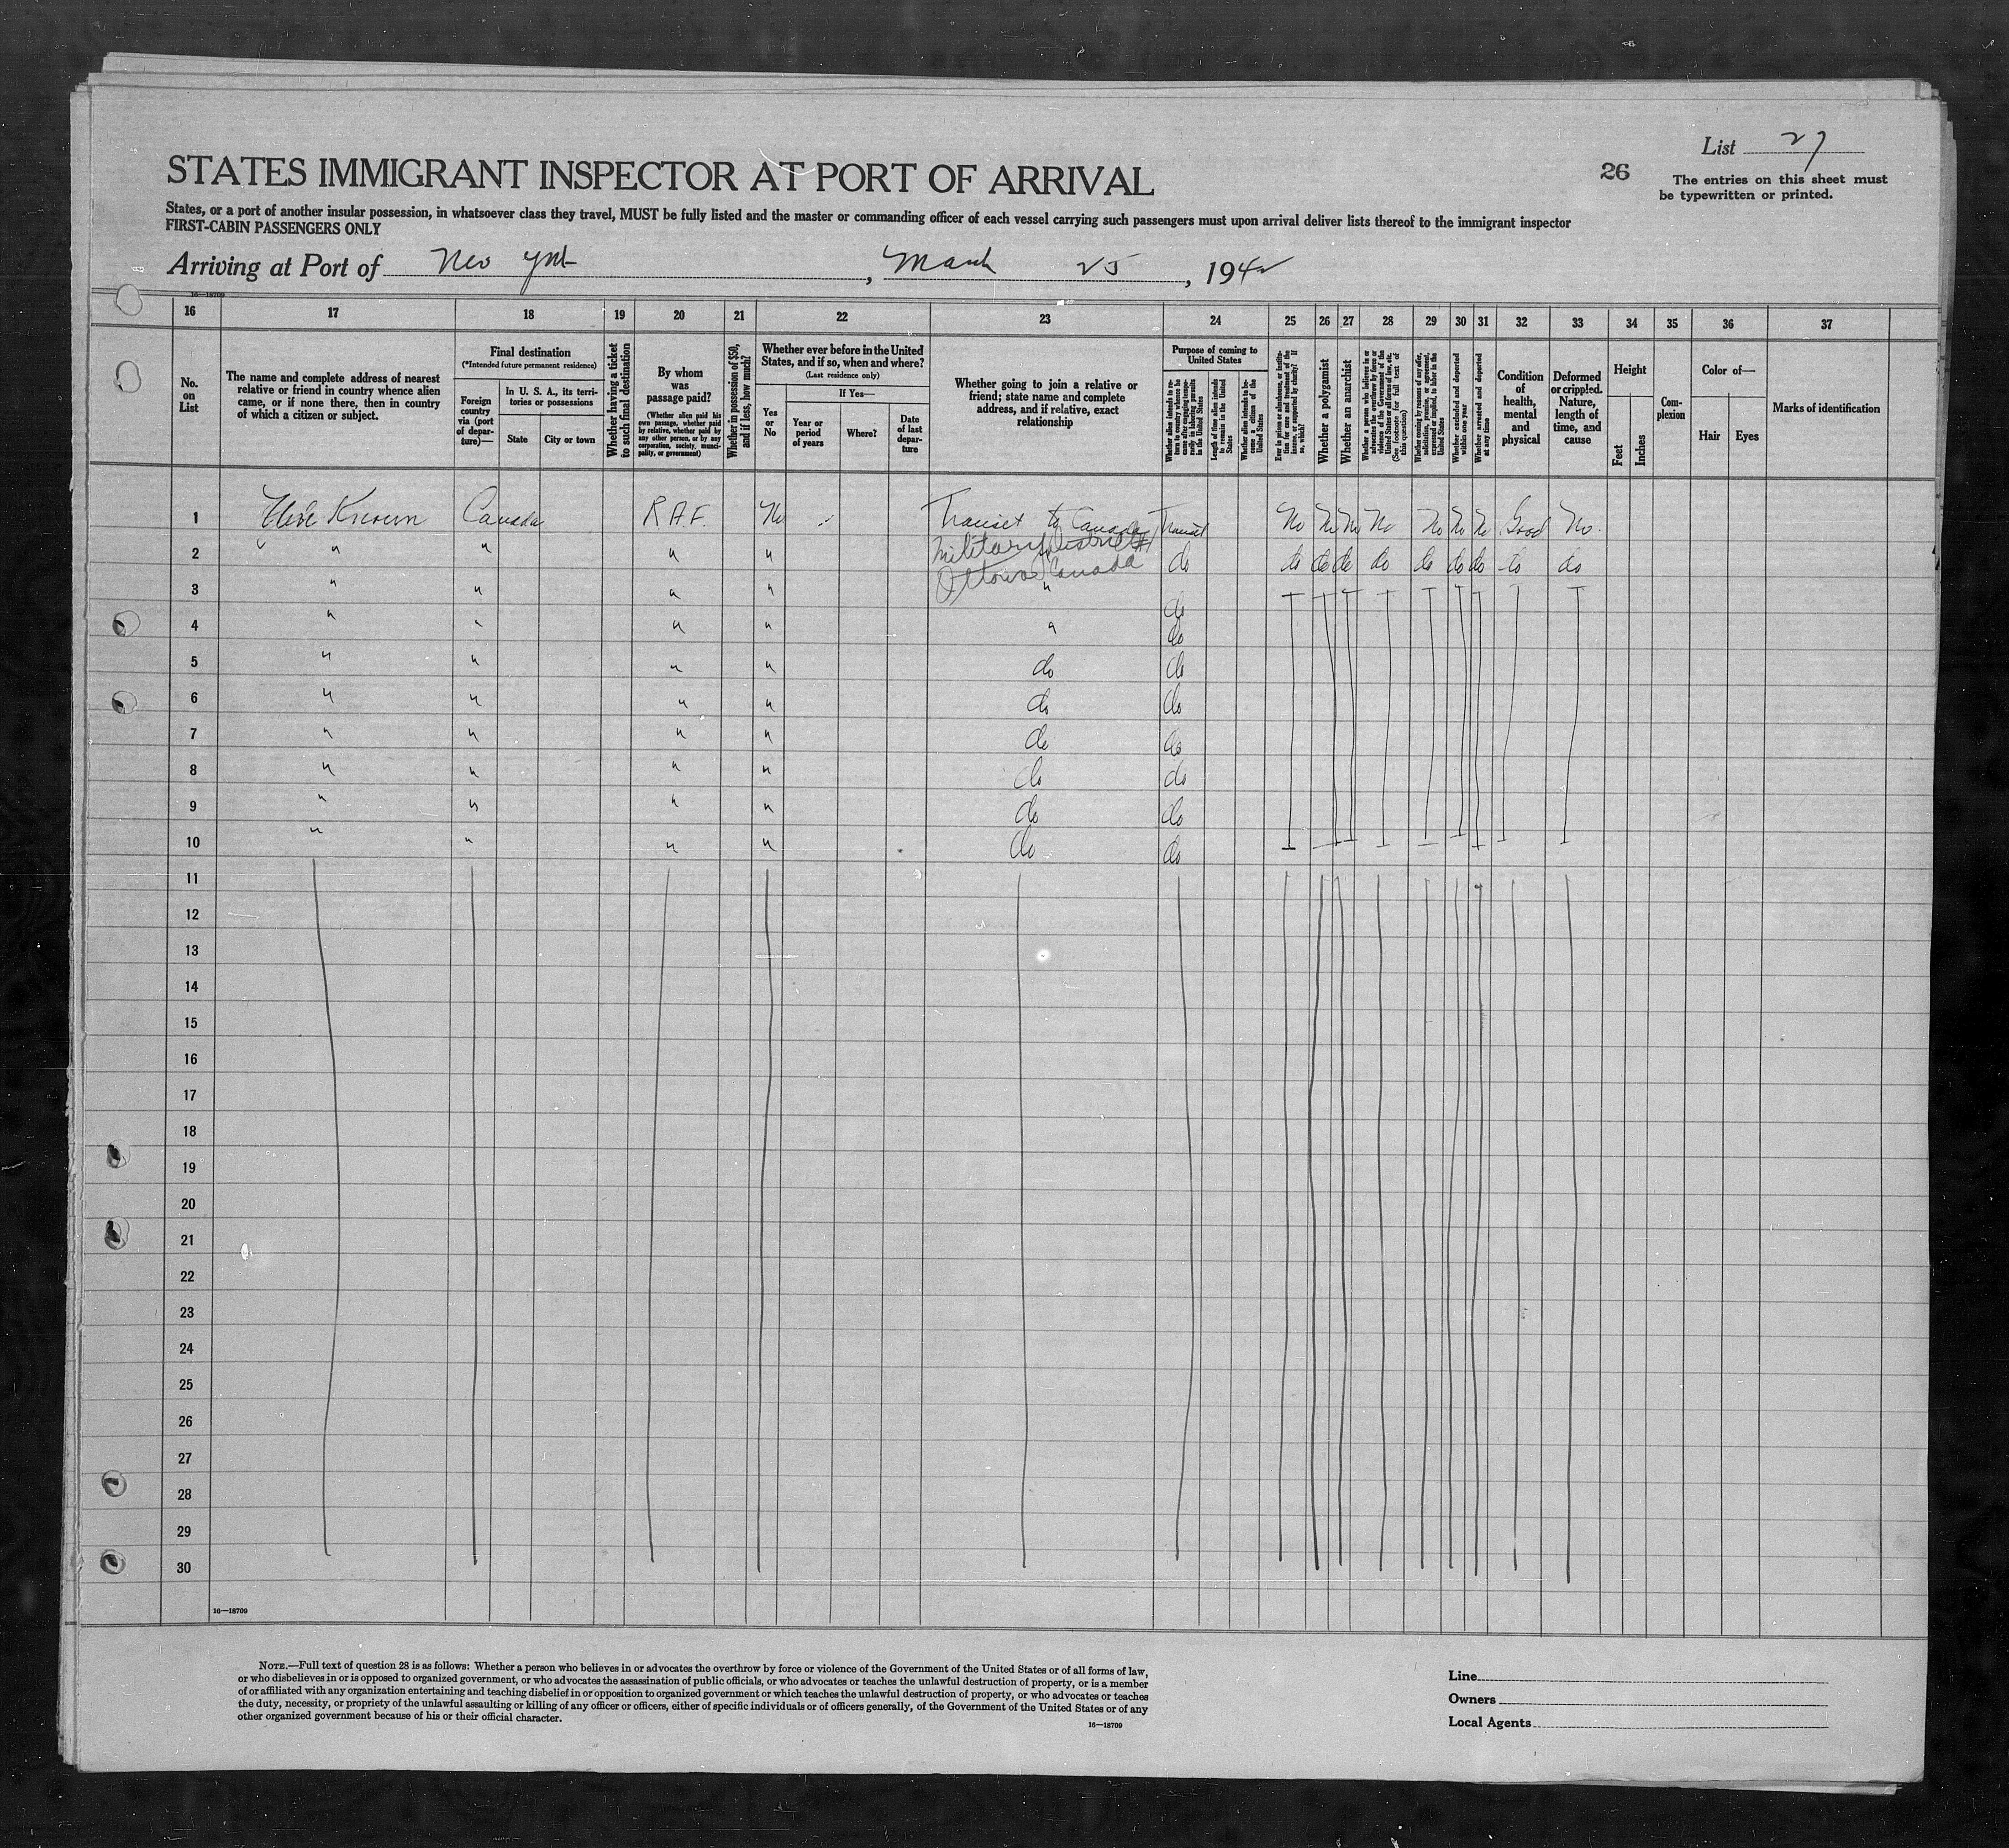 List 27
26
The entries on this sheet must
be typewritten or printed.
STATES IMMIGRANT INSPECTOR AT PORT OF ARRIVAL
States, or a port of another insular possession, in whatsoever class they travel, MUST be fully listed and the master or commanding officer of each vessel carrying such passengers must upon arrival deliver lists thereof to the immigrant inspector
FIRST-CABIN PASSENGERS ONLY
Arriving at Port of New York, March 25, 1942
16—18709
16 17 18 19 20 21 22 23 24 25 26 27 28 29 30 31 32 33 34 35 36 37
No.
on
List
The name and complete address of nearest
relative or friend in country whence alien
came, or if none there, then in country
of which a citizen or subject.
Final destination
(*Intended future permanent residence)
Foreign
country
via (port
of depar-
ture)—
In U. S. A., its terri-
tories or possessions
State
City or town
Whether having a ticket
to such final destination
By whom
was
passage paid?
(Whether alien paid his
own passage, whether paid
by relative, whether paid by
any other person, or by any
corporation, society, munici-
pality, or government)
Whether in possession of $50,
and if less, how much?
Whether ever before in the United
States, and if so, when and where?
(Last residence only)
Yes
or
No
If Yes—
Year or
period
of years
Where?
Date
of last
depar-
ture
Whether going to join a relative or
friend; state name and complete
address, and if relative, exact
relationship
Purpose of coming to
United States
Whether alien intends to re-
turn to country whence he
came after engaging tempo-
rarily in laboring pursuits
in the United States
Length of time alien intends
to remain in the United
States
Whether alien intends to be-
come a citizen of the
United States
Ever in prison or almshouse, or institu-
tion for care and treatment of the
insane, or supported by charity? If
so, which?
Whether a polygamist
Whether an anarchist
Whether a person who believes in or
advocates the overthrow by force or
violence of the Government of the
United States or all forms of law, etc.
(See footnote for full text of
this question)
Whether coming by reason of any offer,
solicitation, promise, or agreement,
expressed or implied, to labor in the
United States
Whether excluded and deported
within one year
Whether arrested and deported
at any time
Condition
of
health,
mental
and
physical
Deformed
or crippled.
Nature,
length of
time, and
cause
Height
Feet
Inches
Com-
plexion
Color of—
Hair
Eyes
Marks of identification
1 None Known Canada R.A.F. No Transit to Canada Transit No No No No No No No Good No.
Military District #1
2 " " " " do do do do do do do do do do
Ottawa Canada
3 " " " " " do
4 " " " " " do
5 " " " " do do
6 " " " " do do
7 " " " " do do
8 " " " " do do
9 " " " " do do
10 " " " " do do
11
12
13
14
15
16
17
18
19
20
21
22
23
24
25
26
27
28
29
30
16—18709
NOTE.—Full text of question 28 is as follows: Whether a person who believes in or advocates the overthrow by force or violence of the Government of the United States or of all forms of law,
or who disbelieves in or is opposed to organized government, or who advocates the assassination of public officials, or who advocates or teaches the unlawful destruction of property, or is a member
of or affiliated with any organization entertaining and teaching disbelief in or opposition to organized government or which teaches the unlawful destruction of property, or who advocates or teaches
the duty, necessity, or propriety of the unlawful assaulting or killing of any officer or officers, either of specific individuals or of officers generally, of the Government of the United States or of any
other organized government because of his or their official character.
16—18709
Line
Owners
Local Agents